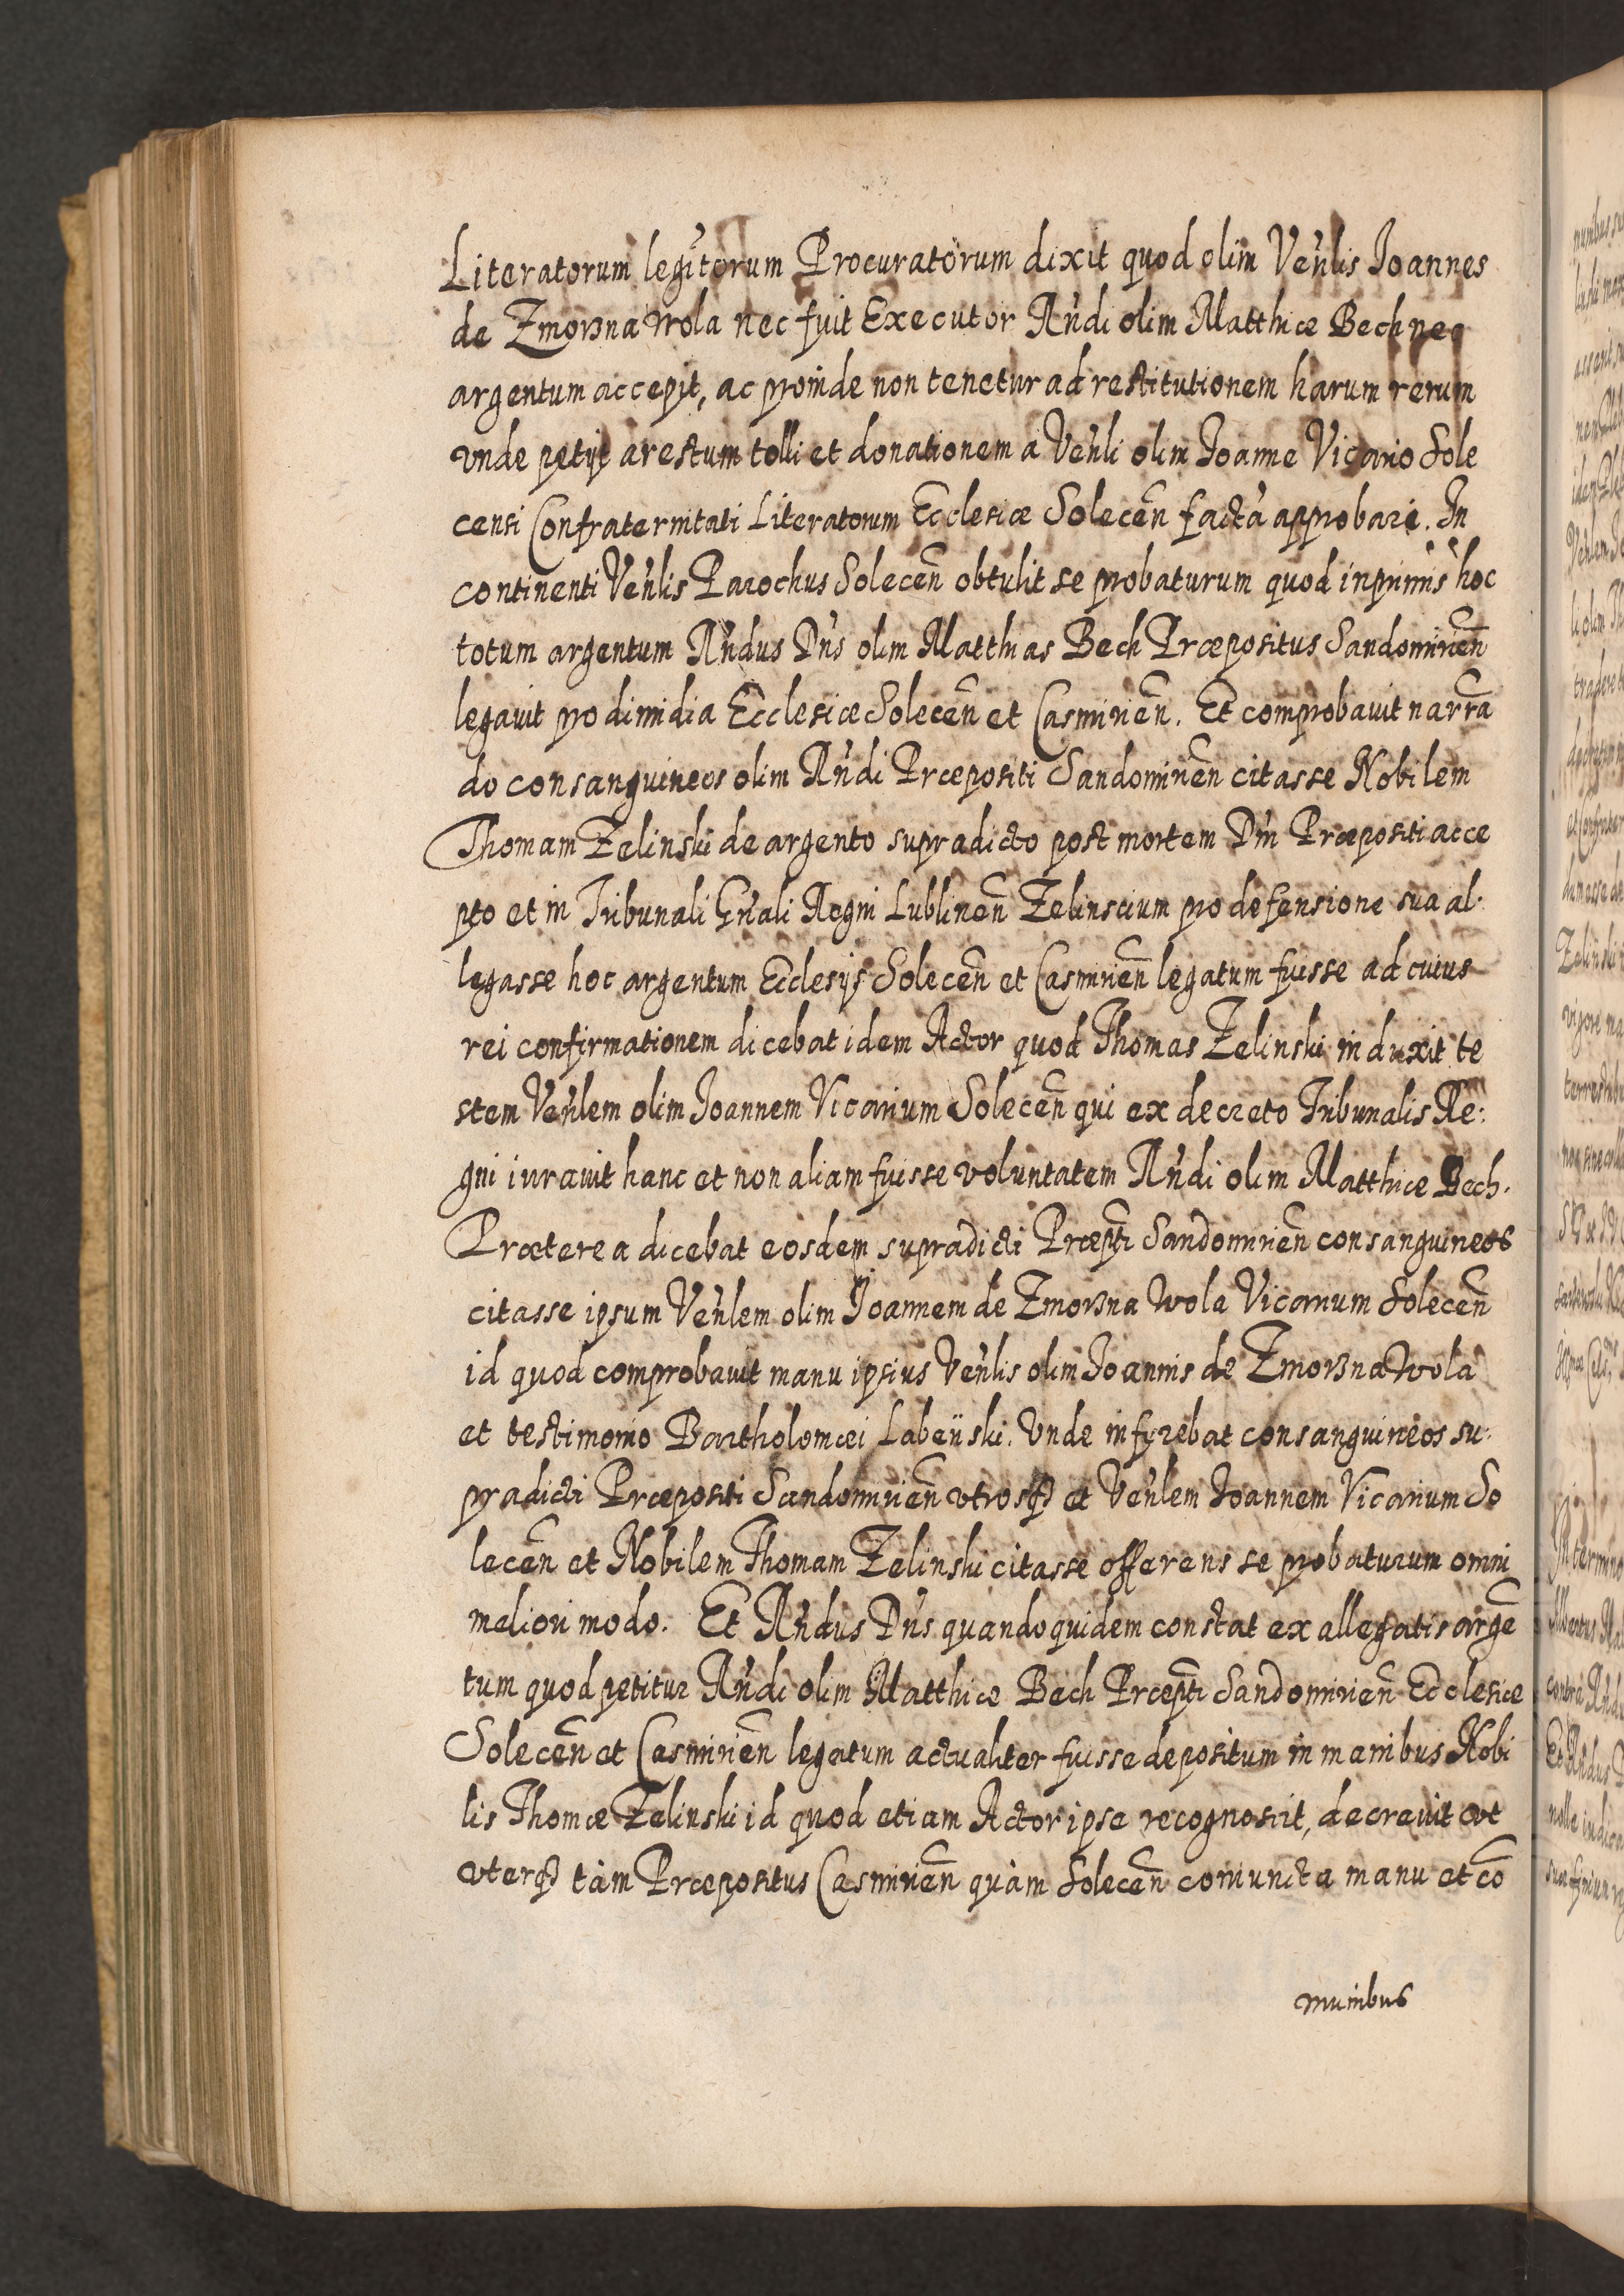 Literatorum legitorum Procuratorum dixit quod olim Venlis Ioannes
de Zmorzna Wola nec fuit Executor Rndi olim Matthiæ Bech neq
argentum accepit, ac proinde non tenetur ad restitutionem harum rerum
vnde petijt arestum tolli et donationem a Venli olim Ioanne Vicario Sole
censi Confraternitati Literatorum Ecclesiæ Solecen̄ factã approbari. In
continenti Venlis Parochus Solecen̄ obtulit se probaturum quod inprimis hoc
totum argentum Rndus Dns olim Matthias Bech Præpositus Sandomirien̄
legauit pro dimidia Ecclesiæ Solecen̄ et Casmirien̄. Et comprobauit narrã
do consanguineos olim Rndi Præpositi Sandomirien̄ citasse Nobilem
Thomam Zelinski de argento supradicto post mortem Dni Præpositi acce
pto et in Tribunali Gnali Regni Lublinen̄ Zelinscium pro defensione sua al.
legasse hoc argentum Ecclesijs Solecen̄ et Casmirien̄ legatum fuisse ad cuius
rei confirmationem dicebat idem Actor quod Thomas Zelinski induxit te
stem Venlem olim Ioannem Vicarium Solecen̄ qui ex decreto Tribunalis Re:
gni iurauit hanc et non aliam fuisse voluntatem Rndi olim Matthiæ Bech.
Præterea dicebat eosdem supradicti Præpti Sandomirien̄ consanguineos
citasse ipsum Venlem olim Ioannem de Zmorzna Wola Vicarium Solecen̄
id quod comprobauit manu ipsius Venlis olim Ioannis de Zmorzna Wola
et testimonio Bartholomæi Labęnski. Vnde inferebat consanguineos su:
pradicti Præpositi Sandomirien̄ vtrosq̃ et Venlem Ioannem Vicarium So
lecen̄ et Nobilem Thomam Zelinski citasse offerens se probaturum omni
meliori modo. Et Rndus Dns quandoquidem constat ex allegatis argẽ
tum quod petitur Rndi olim Matthiæ Bech Præpti Sandomirien̄ Ecclesiæ
Solecen̄ et Casmirien̄ legatum actualiter fuisse depositum in manibus Nobi
lis Thomæ Zelinski id quod etiam Actor ipse recognoscit, decreuit vt
vterq̃ tàm Præpositus Casmirien̄ quàm Solecen̄ coniuncta manu et cõ
munibus